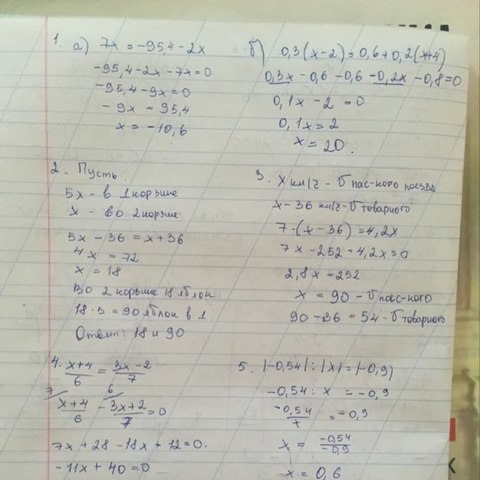 1. а) 7x = -95,4 - 2x
-95,4 - 2x - 7x = 0
-95,4 - 9x = 0
-9x = 95,4
x = -10,6
б) 0,3(x-2) = 0,6 + 0,2(x+4)
0,3x - 0,6 - 0,6 - 0,2x - 0,8 = 0
0,1x - 2 = 0
0,1x = 2
x = 20.
2. Пусть
5x - в 1 корзине
x - во 2 корзине
5x - 36 = x + 36
4x = 72
x = 18
Во 2 корзине 18 яблок
18·5 = 90 яблок в 1
Ответ: 18 и 90
3. x км/ч - v пас-ного поезда
x - 36 км/ч - v товарного
7·(x - 36) = 4,2x
7x - 252 - 4,2x = 0
2,8x = 252
x = 90 - v пасс-ного
90 - 36 = 54 - v товарного
4. x+4/6 = 3x-2/7
7 x+4/6 - 6 3x+2/7 = 0
7x + 28 - 18x + 12 = 0.
-11x + 40 = 0
5. |-0,54| : |x| = |-0,9|
-0,54 : x = -0,9
-0,54/x = -0,9
x = -0,54/-0,9
x = 0,6